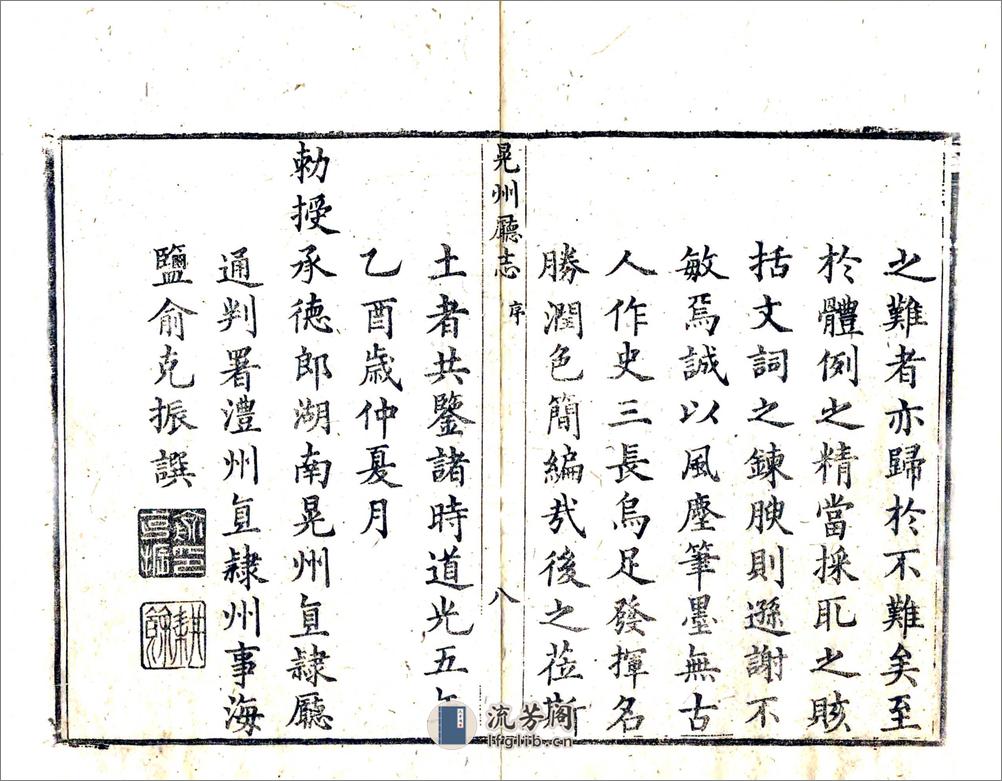 之難者亦歸於不難矣至
於體例之精當採取之賅
括文詞之鍊腴則遜謝不
敏焉誠以風塵筆墨無古
人作史三長烏足發揮名
勝潤色簡編哉後之蒞斯
晃州廳志
序
八
土者共鑒諸時道光五年
乙酉歲仲夏月
勅授承德郎湖南晃州直隸廳
通判署澧州直隸州事海
鹽俞克振譔
俞克振
耕餘
流芳閣
lfglib.cn